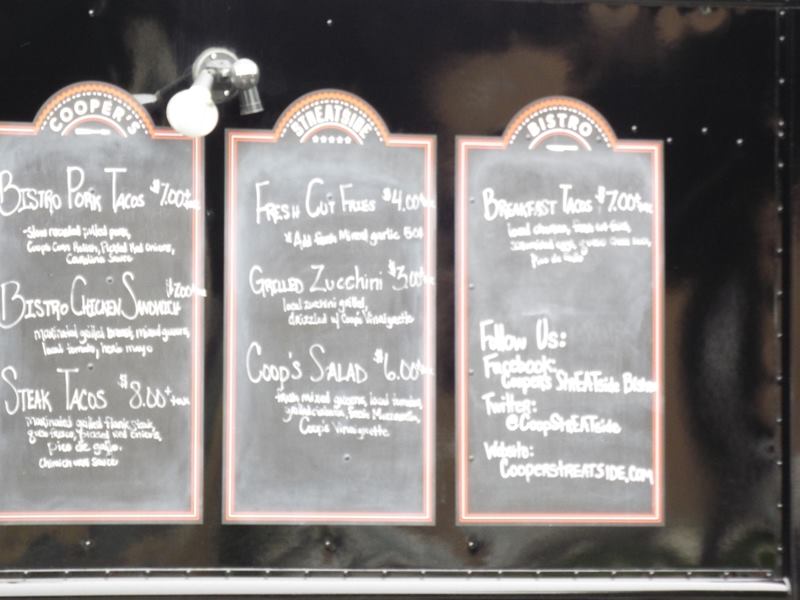 COOPER'S
BISTRO PORK TACOS $7.00+tax
Slow roasted pulled pork,
Coop's Corn Relish, Pickled Red Onions,
Carolina Sauce
BISTRO CHICKEN SANDWICH $7.00+tax
marinated grilled breast, mixed greens,
local tomato, herb mayo
STEAK TACOS $8.00+tax
marinated grilled flank steak,
queso fresco, pickled red onions,
pico de gallo,
Sauce
STREATSIDE
FRESH CUT FRIES $4.00+tax
*Add fresh Mixed garlic 50¢
GRILLED Zucchini $3.00+tax
local zucchini grilled,
drizzled w/ Coop's Vinaigrette
COOP'S SALAD $6.00+tax
fresh mixed greens, local tomatoes
grilled Fresh Mozzarella,
Coop's Vinaigrette
BISTRO
BREAKFAST TACOS $7.00+tax
local chorizo, fresh cut fries,
scrambled eggs, queso
Pico de Gallo
Follow Us:
Facebook:
Cooper's StrEATside Bistro
Twitter:
@CoopStrEATside
Website:
COOPERSTREATSIDE.COM